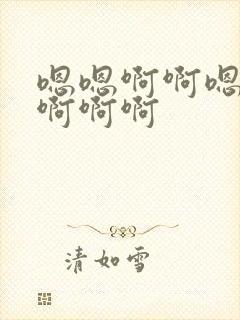 嗯嗯啊啊嗯
啊啊啊
清如雪